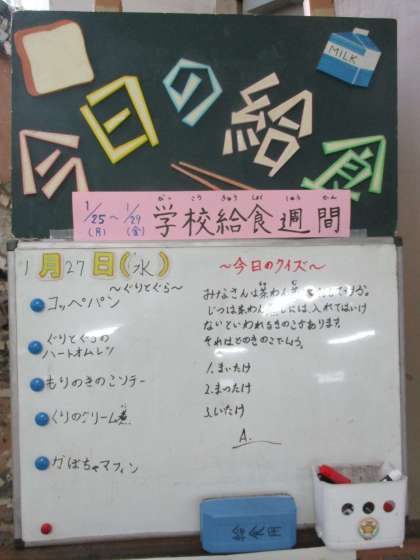 MILK
今日の給食
1/25(月)～1/29(金) 学校給食週間
がっ こう きゅう しょく しゅう かん
1月27日(水)
～ぐりとぐら～
コッペパン
ぐりとぐらの
ハートオムレツ
もりのきのこソテー
くりのクリーム煮
かぼちゃマフィン
～今日のクイズ～
みなさんは茶わん
じつは茶わん には、入れてはいけ
ないといわれるきのこがあります。
それはどのきのこでしょう。
1.まいたけ
2.まつたけ
3.しいたけ
A.